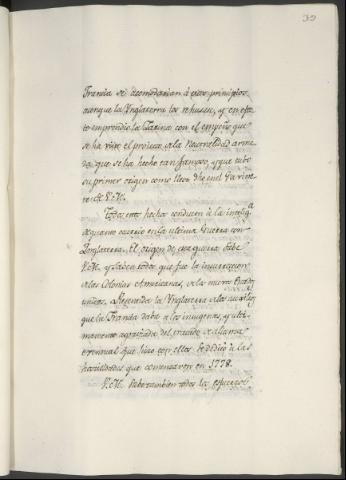 39
Francia se acomodarian á estos principios
aunque la Ynglaterra los rehusase, y en efec
to emprendió la Zarina con el empeño que
se ha visto el proiecto de la Neutralidad arma
da, que se ha hecho tan famoso, y que tubo
su primer origen como llevo dho en el Gavine
te de V.M.
Todos estos hechos conducen á la intelig.a
de quanto ocurrió en la ultima Guerra con
Ynglaterra. El origen de esta guerra sabe
V.M. y saben todos que fue la insurreccion
de las Colonias Americanas,
unidos. Resentida la Ynglaterra de los auxilios
que la Francia daba á los insurgentes, y ulti
mamente agraviada del tratado de alianza
eventual que hizo con ellos se dedicó á las
hostilidades que comenzaron en 1778.
V.M. sabe tambien todos los esfuerzos